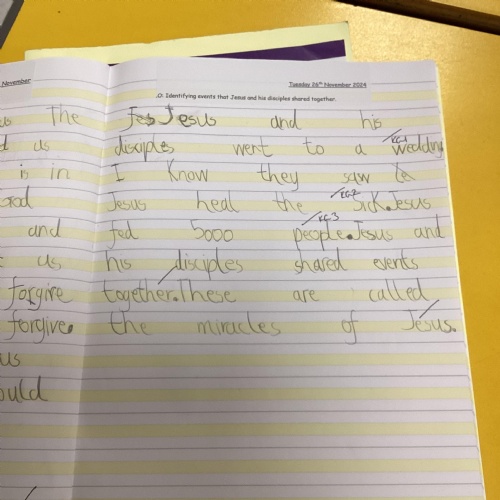 November
Tuesday 26th November 2024
.O: Identifying events that Jesus and his disciples shared together.
The
Jesus and his
us
disciples went to a wedding
KG1
is in
I know they saw
KG2
Jesus heal the Sick. Jesus
KG3
and
fed 5000 people. Jesus and
us,
his disciples shared events
forgive
together. These are called
forgive.
the miracles of Jesus.
us
ould